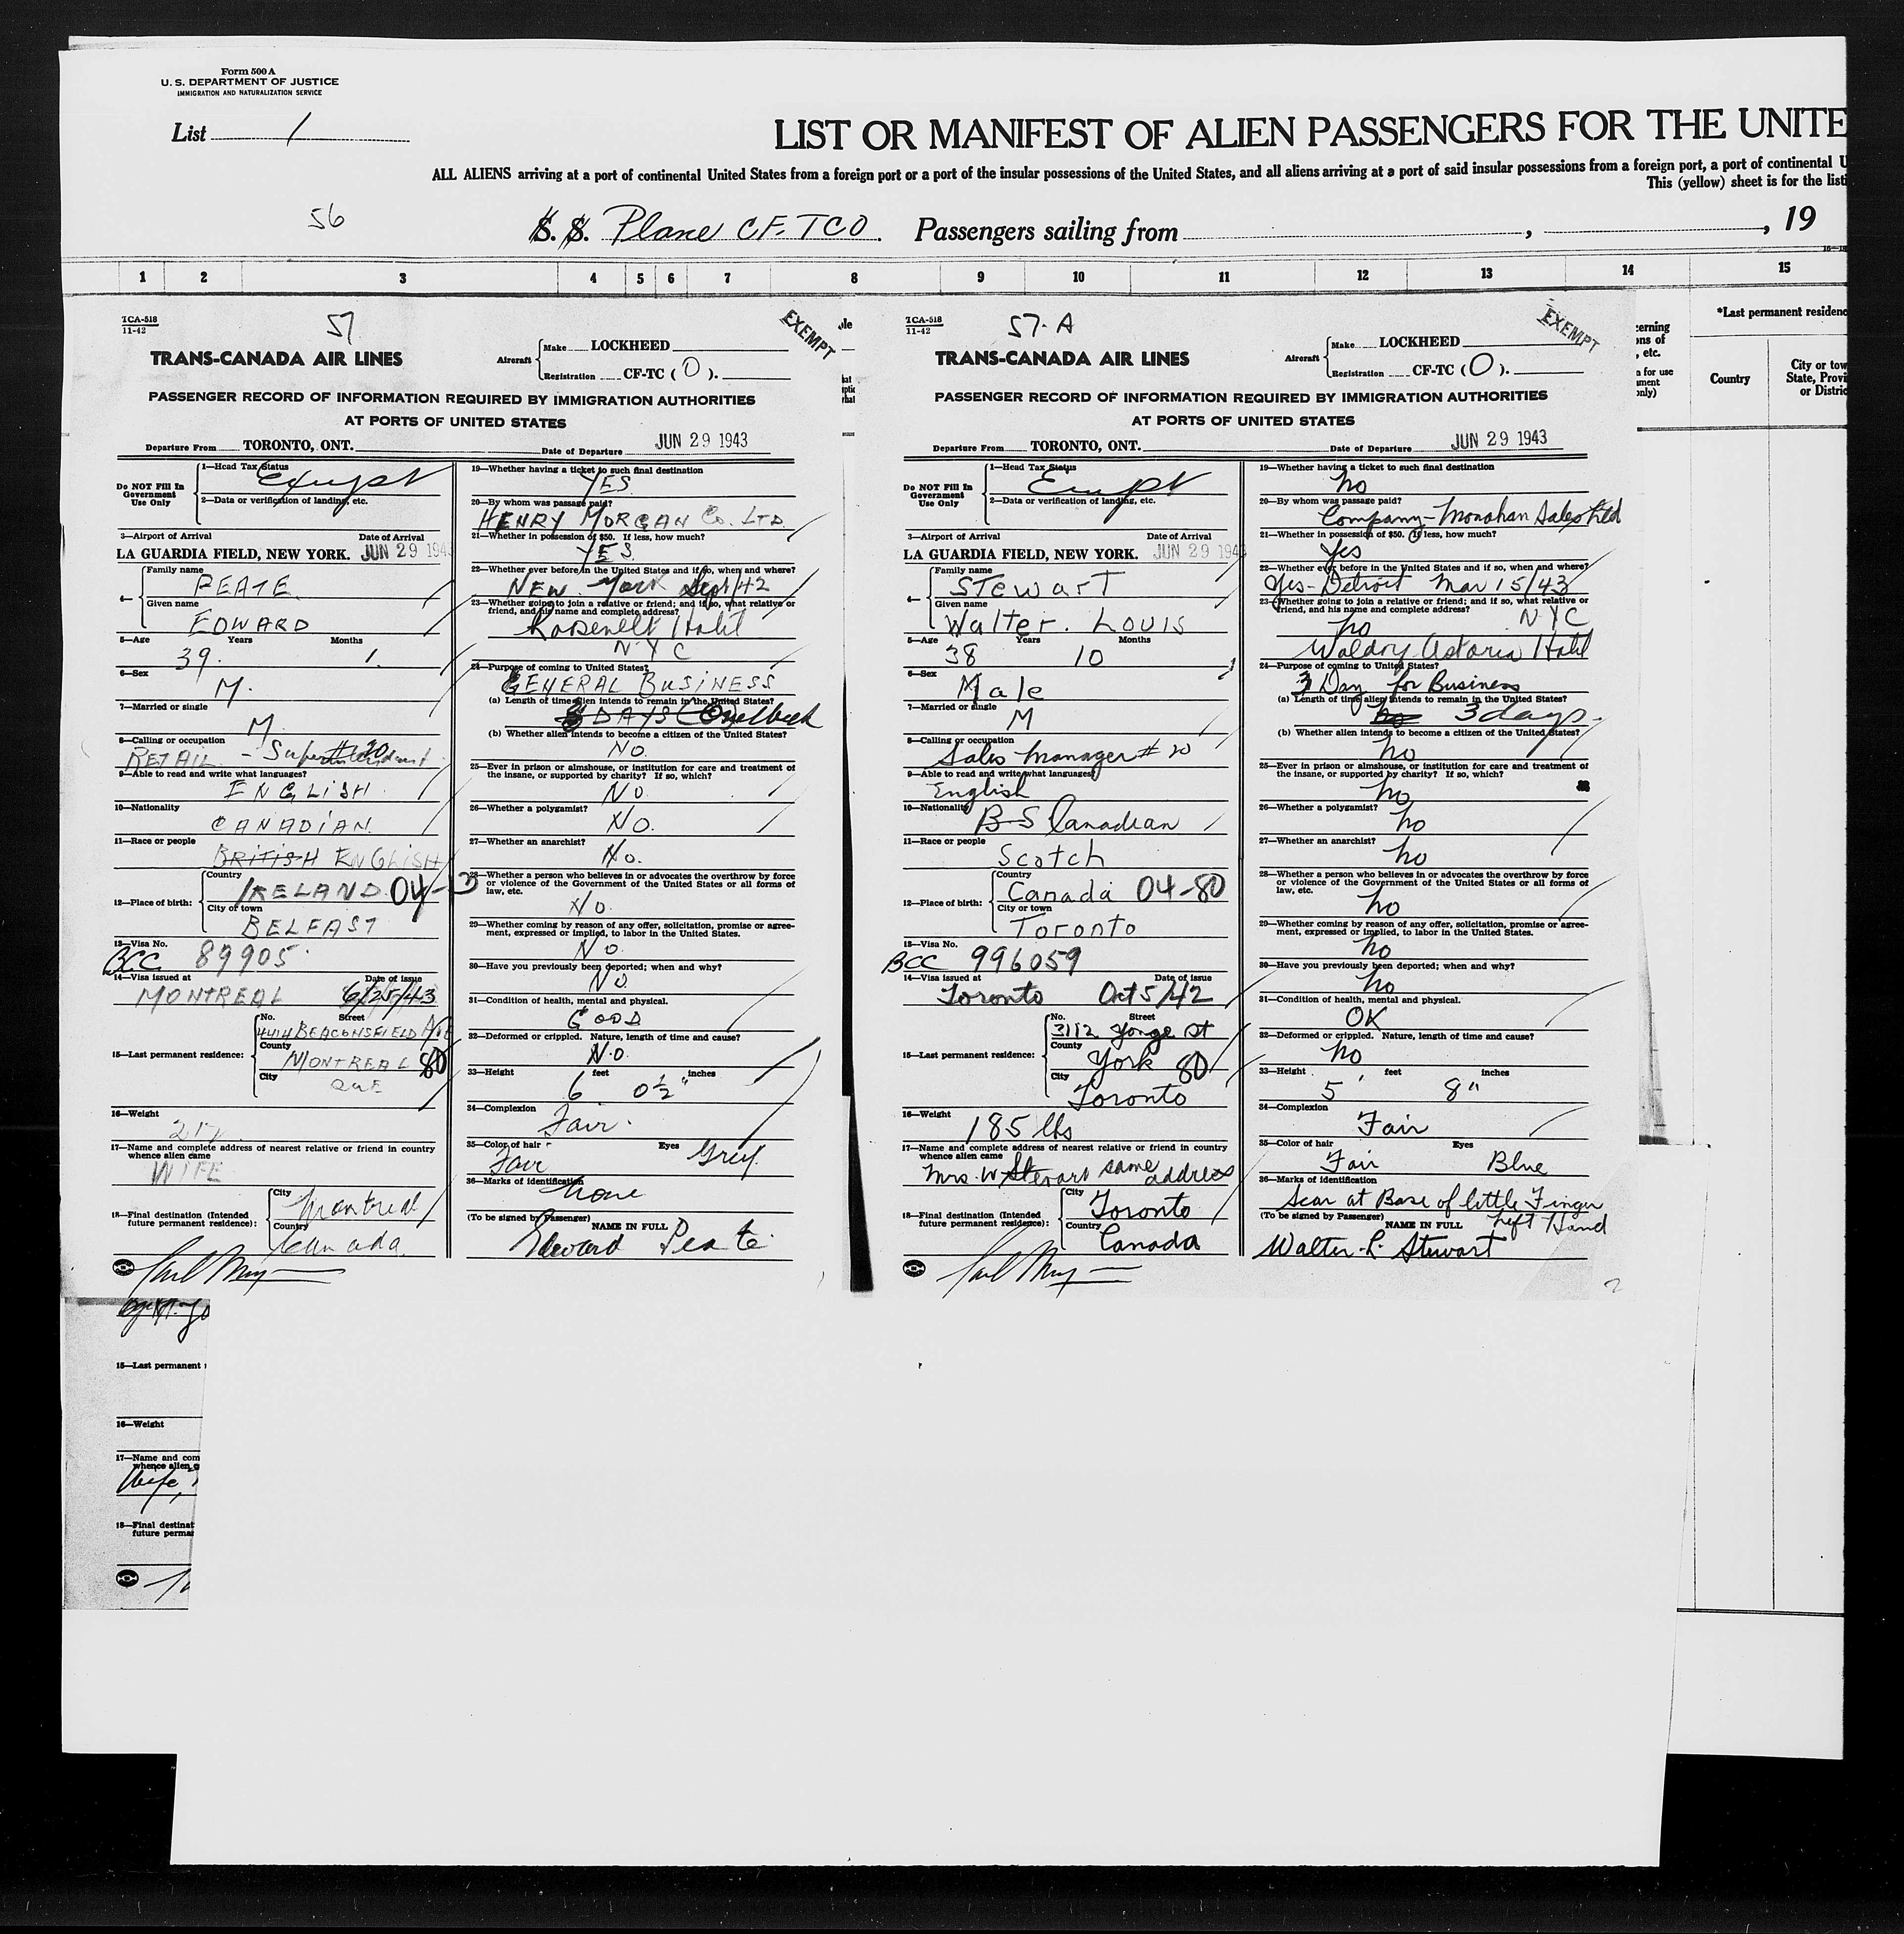 Form 500 A
U. S. DEPARTMENT OF JUSTICE
IMMIGRATION AND NATURALIZATION SERVICE
List 1
LIST OR MANIFEST OF ALIEN PASSENGERS FOR THE UNITE
ALL ALIENS arriving at a port of continental United States from a foreign port or a port of the insular possessions of the United States, and all aliens arriving at a port of said insular possessions from a foreign port, a port of continental U
This (yellow) sheet is for the listi
56
S. S. Plane CF.TCO. Passengers sailing from , , 19
1 2 3 4 5 6 7 8 9 10 11 12 13 14 15
TCA-518
11-42
57
EXEMPT
TRANS-CANADA AIR LINES
Aircraft
Make LOCKHEED
Registration CF-TC ( O ).
PASSENGER RECORD OF INFORMATION REQUIRED BY IMMIGRATION AUTHORITIES
AT PORTS OF UNITED STATES
Departure From TORONTO, ONT. Date of Departure JUN 29 1943
Do NOT Fill In Government Use Only
1—Head Tax Status
Exempt
2—Data or verification of landing, etc.
3—Airport of Arrival Date of Arrival
LA GUARDIA FIELD, NEW YORK. JUN 29 194
4—
Family name
PEATE
Given name
EDWARD
5—Age Years Months
39. 1.
6—Sex
M.
7—Married or single
M
8—Calling or occupation
RETAIL - Superintendent #20
9—Able to read and write what languages?
ENGLISH.
10—Nationality
CANADIAN
11—Race or people
BRITISH ENGLISH
12—Place of birth:
Country
IRELAND 04-
City or town
BELFAST
13—Visa No.
BCC 89905
14—Visa issued at Date of issue
MONTREAL 6/25/43
15—Last permanent residence:
No. Street
4414 BEACONSFIELD AVE
County
MONTREAL 80
City
QUE
16—Weight
17—Name and complete address of nearest relative or friend in country
whence alien came
WIFE
18—Final destination (Intended
future permanent residence):
City
Montreal
Country
Canada
19—Whether having a ticket to such final destination
YES
20—By whom was passage paid?
HENRY MORGAN Co. LTD.
21—Whether in possession of $50. If less, how much?
YES
22—Whether ever before in the United States and if so, when and where?
NEW York Sept/42
23—Whether going to join a relative or friend; and if so, what relative or
friend, and his name and complete address?
Roosevelt Hotel
N Y C
24—Purpose of coming to United States?
GENERAL BUSINESS
(a) Length of time alien intends to remain in the United States?
DAYS One Week
(b) Whether alien intends to become a citizen of the United States?
NO
25—Ever in prison or almshouse, or institution for care and treatment of
the insane, or supported by charity? If so, which?
NO
26—Whether a polygamist?
NO.
27—Whether an anarchist?
No.
28—Whether a person who believes in or advocates the overthrow by force
or violence of the Government of the United States or all forms of
law, etc.
No
29—Whether coming by reason of any offer, solicitation, promise or agree-
ment, expressed or implied, to labor in the United States.
No
30—Have you previously been deported; when and why?
NO
31—Condition of health, mental and physical.
GOOD
32—Deformed or crippled. Nature, length of time and cause?
No
33—Height feet inches
6 0½"
34—Complexion
Fair.
35—Color of hair Eyes
Fair Grey.
36—Marks of identification
None
(To be signed by Passenger) NAME IN FULL
Edward Peate
TCA-518
11-42
57-A
EXEMPT
TRANS-CANADA AIR LINES
Aircraft
Make LOCKHEED
Registration CF-TC ( O ).
PASSENGER RECORD OF INFORMATION REQUIRED BY IMMIGRATION AUTHORITIES
AT PORTS OF UNITED STATES
Departure From TORONTO, ONT. Date of Departure JUN 29 1943
Do NOT Fill In Government Use Only
1—Head Tax Status
Exempt
2—Data or verification of landing, etc.
3—Airport of Arrival Date of Arrival
LA GUARDIA FIELD, NEW YORK. JUN 29 1943
4—
Family name
Stewart
Given name
Walter. Louis
5—Age Years Months
38 10
6—Sex
Male
7—Married or single
M
8—Calling or occupation
Sales Manager #20
9—Able to read and write what languages?
English
10—Nationality
B S Canadian
11—Race or people
Scotch
12—Place of birth:
Country
Canada 04-80
City or town
Toronto
13—Visa No.
BCC 996059
14—Visa issued at Date of issue
Toronto Oct 5/42
15—Last permanent residence:
No. Street
3112 Yonge St
County
York 80
City
Toronto
16—Weight
185 lbs
17—Name and complete address of nearest relative or friend in country
whence alien came
Mrs. W. Stewart same address
18—Final destination (Intended
future permanent residence):
City
Toronto
Country
Canada
19—Whether having a ticket to such final destination
no
20—By whom was passage paid?
Company- Monahan Sales Ltd
21—Whether in possession of $50. If less, how much?
Yes
22—Whether ever before in the United States and if so, when and where?
Yes- Detroit Mar 15/43
23—Whether going to join a relative or friend; and if so, what relative or
friend, and his name and complete address?
no NYC
Waldry Astoria Hotel
24—Purpose of coming to United States?
3 Day for Business
(a) Length of time alien intends to remain in the United States?
no 3 days.
(b) Whether alien intends to become a citizen of the United States?
no
25—Ever in prison or almshouse, or institution for care and treatment of
the insane, or supported by charity? If so, which?
no
26—Whether a polygamist?
no
27—Whether an anarchist?
no
28—Whether a person who believes in or advocates the overthrow by force
or violence of the Government of the United States or all forms of
law, etc.
no
29—Whether coming by reason of any offer, solicitation, promise or agree-
ment, expressed or implied, to labor in the United States.
no
30—Have you previously been deported; when and why?
no
31—Condition of health, mental and physical.
OK
32—Deformed or crippled. Nature, length of time and cause?
no
33—Height feet inches
5' 8"
34—Complexion
Fair
35—Color of hair Eyes
Fair Blue
36—Marks of identification
Scar at Base of little Finger
Left Hand
(To be signed by Passenger) NAME IN FULL
Walter L. Stewart
cerning
ons of
, etc.
n for use
only)
*Last permanent residenc
Country
City or tow
State, Provi
or Distric
15—Last permanent
16—Weight
17—Name and com
whence alien c
Wife,
18—Final destinat
future perma